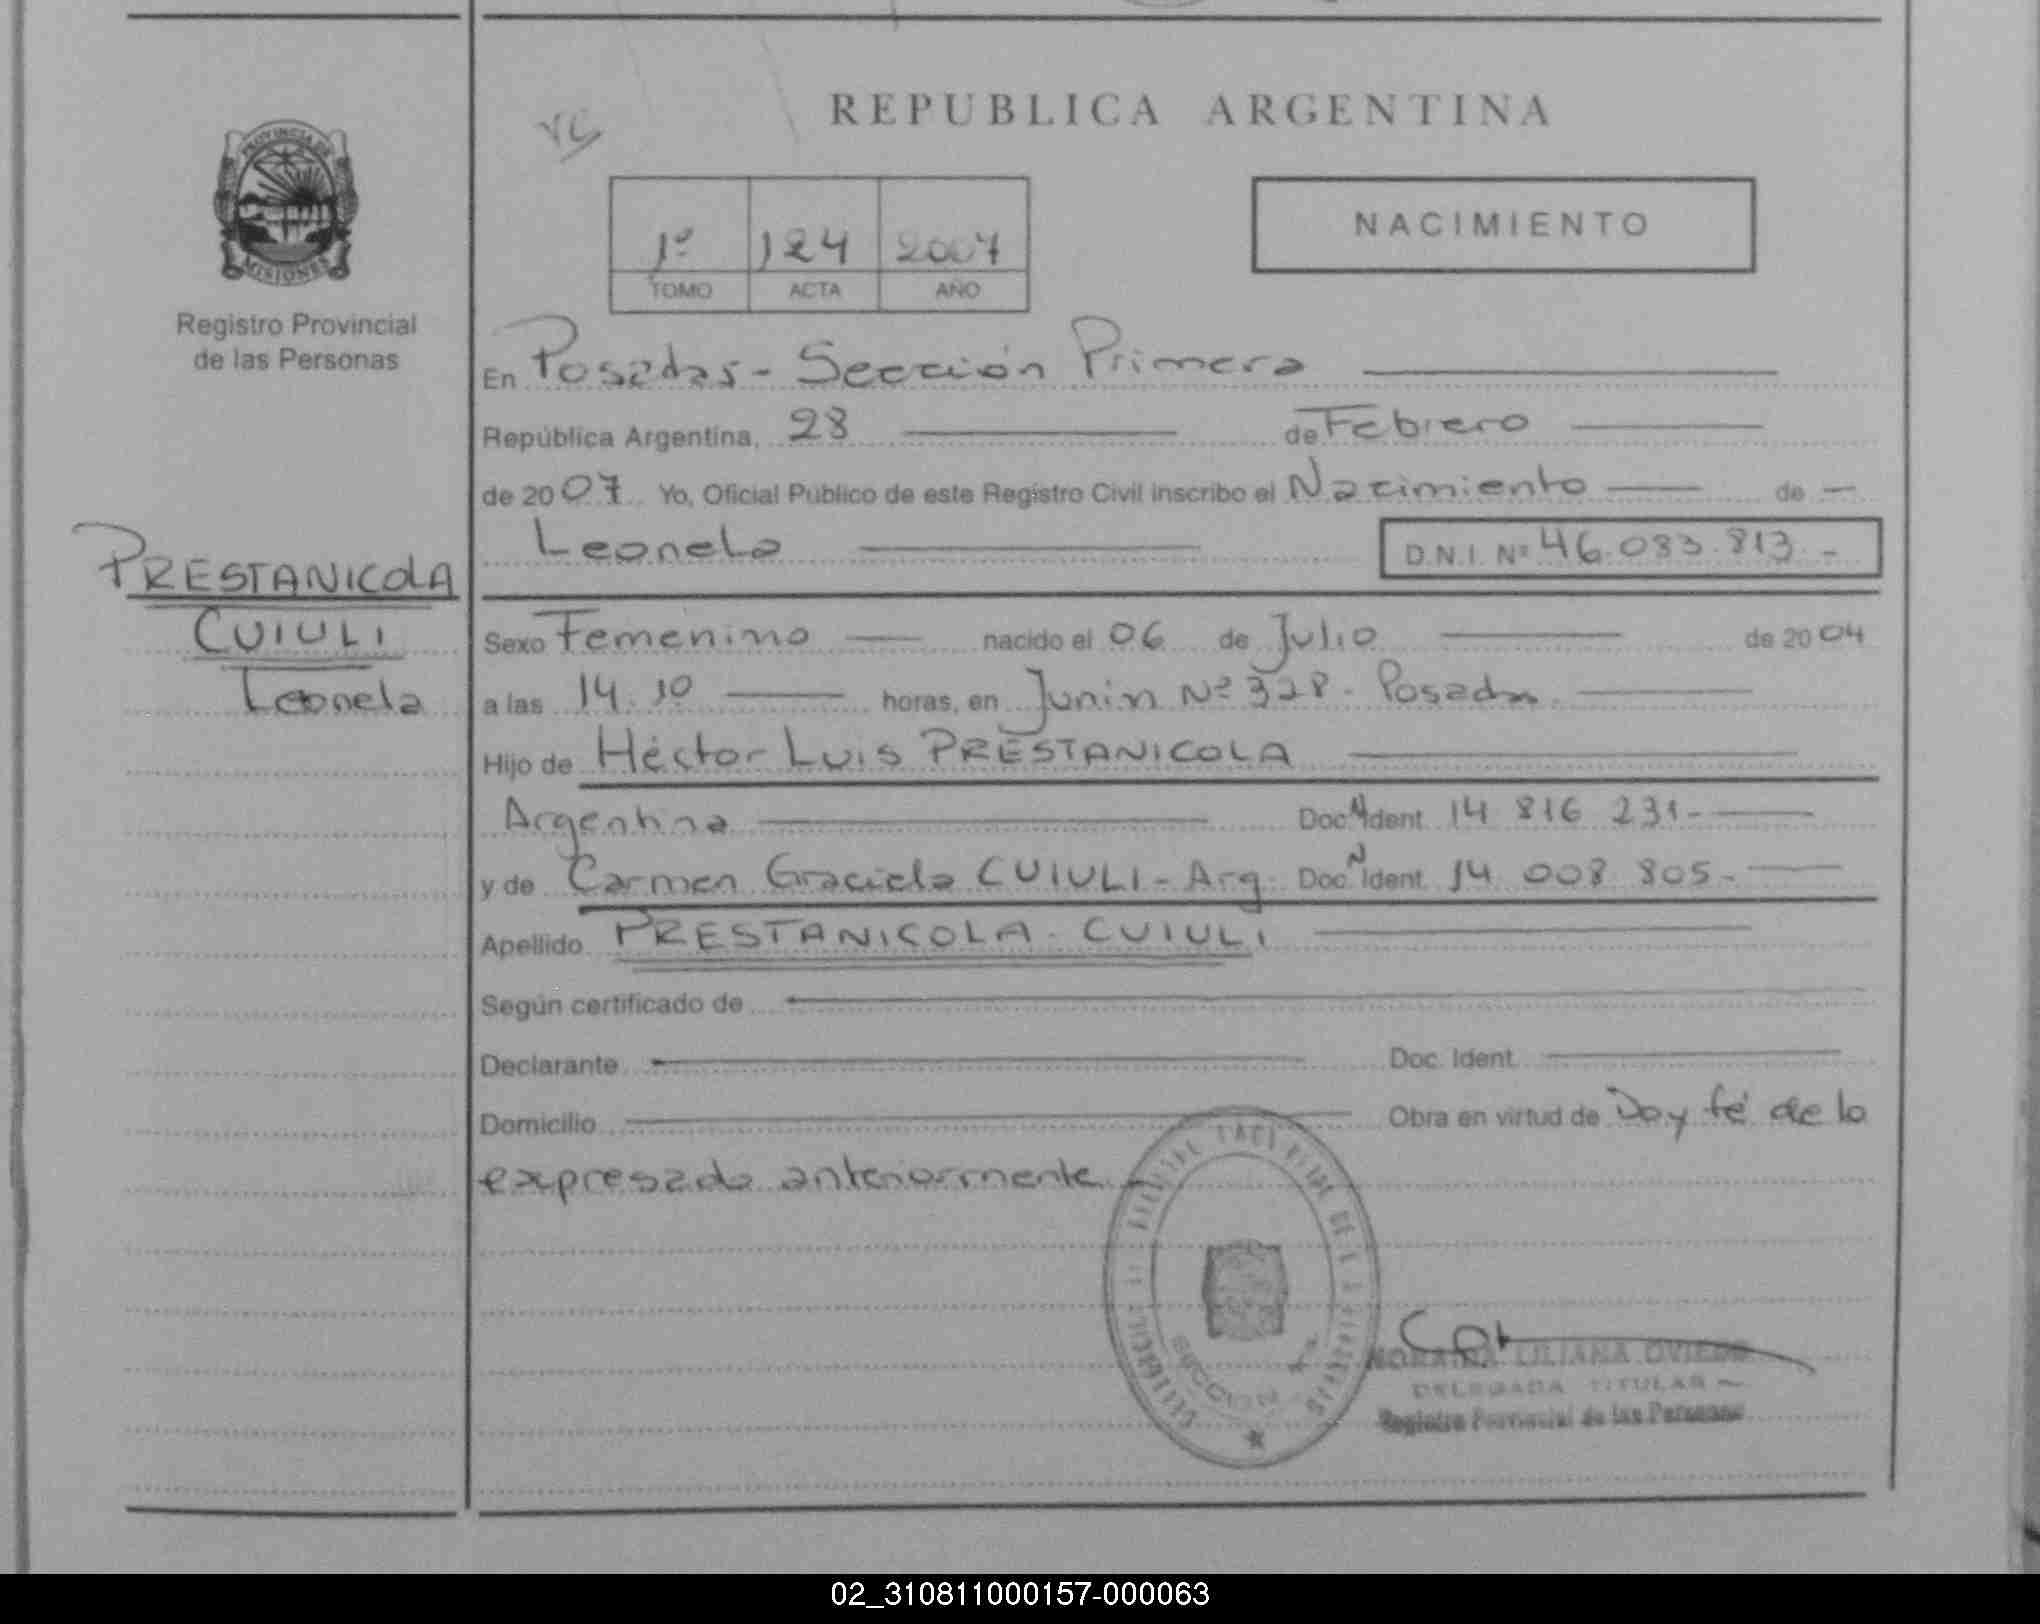 REPUBLICA ARGENTINA
PROVINCIA DE
MISIONES
Registro Provincial
de las Personas
1º 124 2007
TOMO ACTA AÑO
NACIMIENTO
En Posadas - Sección Primera
República Argentina, 28 de Febrero
de 2007 Yo, Oficial Público de este Registro Civil inscribo el Nacimiento de
Leonela D.N.I. Nº 46.083.813.-
PRESTANICOLA
CUIULI
Leonela
Sexo Femenino nacido el 06 de Julio de 2004
a las 14.10 horas, en Junín Nº 328 - Posadas
Hijo de Héctor Luis PRESTANICOLA
Argentina Doc N Ident 14 816 231-
y de Carmen Graciela CUIULI - Arg. Doc N Ident. 14 008 805-
Apellido PRESTANICOLA - CUIULI
Según certificado de
Declarante Doc. Ident.
Domicilio Obra en virtud de Doy fé de lo
expresado anteriormente
SECCION
LILIANA OVIEDO
DELEGADA TITULAR
Registro Provincial de las Personas
02_310811000157-000063